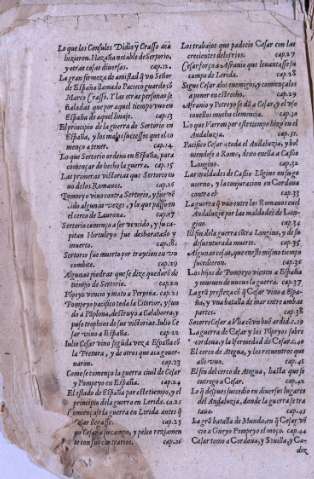 Lo que los Consules Didio y Crasso acá
hizieron. Hazaña notable de Sertorio,
y otras cosas diversas. cap.12
La gran firmeza de amistad q̃ vn Señor
de España llamado Pacieco guardó à
Marco Crasso. Y las otras personas se
ñaladas que por aquel tiempo vuo en
España de aquel linaje. cap.13
El principio de la guerra de Sertorio en
España, y los malos successos que el co
menço a tener. cap.14
Lo que Sertorio ordena en España, para
començar de hecho la guerra. cap.15
Las primeras victorias que Sertorio tu
uo de los Romanos. cap.16
Pompeyo vino contra Sertorio, y fue vẽ
cido algunas vezes, y lo que passò en
el cerco de Laurona. cap.17
Sertorio comiença a ser vencido, y su ca-
pitan Hertuleyo fue desbaratado y
muerto. cap.18
Sertorio fue muerto por traycion en vn
combite. cap.19
Algunas piedras que se dize quedarõ de
tiempo de Sertorio. cap.20
Põpeyo vencio y mato a Perpena. cap.21
Pompeyo pacifico toda la Citerior, y fun
do a Pãplona, destruyo a Calahorra, y
puso tropheos de sus victorias. Iulio Ce
sar vino a España. cap.22
Iulio Cesar vino segũda vez a España cõ
la Pretura, y de otros que aca gouer-
naron. cap.23
Como se començo la guerra ciuil de Cesar
y Pompeyo en España. cap.24
El estado de España por este tiempo, y el
principio dela guerra en Lerida. ca.25
Començasse la guerra en Lerida antes q̃
Cesar llegasse. cap.
Cesar llega a su campo, y pelea reziamen
te con sus contrarios. cap.26
Los trabajos que padecio Cesar con las
crecientes delos rios. cap.27
Cesar forço a Afranio que leuantasse su
campo de Lerida. cap.28
Sigue Cesar a los enemigos, y comẽçalos
a poner en estrecho. cap.29
Afranio y Petreyo se dã a Cesar, y el vso
con ellos mucha clemencia. cap.30
Lo que Varron por este tiempo hizo en el
Andaluzia. cap.31
Pacifico Cesar toda el Andaluzia, y bol
uiendose a Roma, dexo en ella a Cassio
Longino. cap.32
Las maldades de Casio Lõgino en su go
uierno, y la conjuracion en Cordoua
contra el. cap.33
La guerra q̃ vuo entre los Romanos en el
Andaluzia por las maldades de Lon-
gino. cap.34
El fin dela guerra cõtra Longino, y de su
desuenturada muerte. cap.35
Algunas cosas, que en este mismo tiempo
sucedieron. cap.36
Los hijos de Pompeyo vienen a España
y mueuen de nueuo la guerra. cap.37
La grã presteza cõ q̃ Cesar vino a Espa-
ña, y vna batalla de mar entre ambas
partes. cap.38
Socorre Cesar a Vlia cõ vn buẽ ardid. c.39
La guerra de Cesar y los Põpeyos sobre
cordoua, y la enfermedad de Cesar. c.40
El cerco de Ategua, y los recuentros que
alli vuo. cap.41
El fin del cerco de Ategua, hasta que se
entrego a Cesar. cap.42
Lo q̃ despues sucedio en diuersos lugares
del Andaluzia, donde la guerra se tra
taua. cap.43
La grã batalla de Munda, en q̃ Cesar vẽ
cio a Gneyo Pompeyo el moço. cap.44
Cesar tomo a Cordoua, y Seuilla, y Ca-
diz